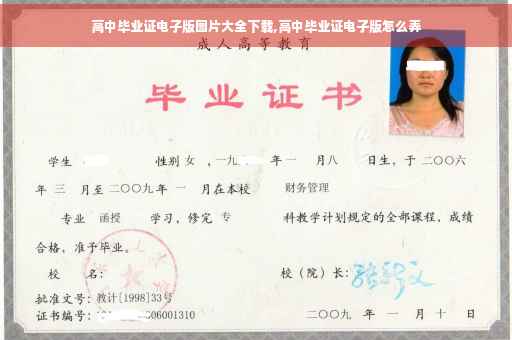 高中毕业证电子版图片大全下载,高中毕业证电子版怎么弄
成人高等教育
毕业证书
学生 性别 女 ,一九 年一 月八 日生，于二〇〇六
年 三 月至二〇〇九年 一 月在本校 财务管理
专业 函授 学习，修完 专 科教学计划规定的全部课程，成绩
合格，准予毕业。
校 名： 校（院）长：
批准文号：教计[1998]33号
证书编号： 06001310 二〇〇九 年 一 月 十 日